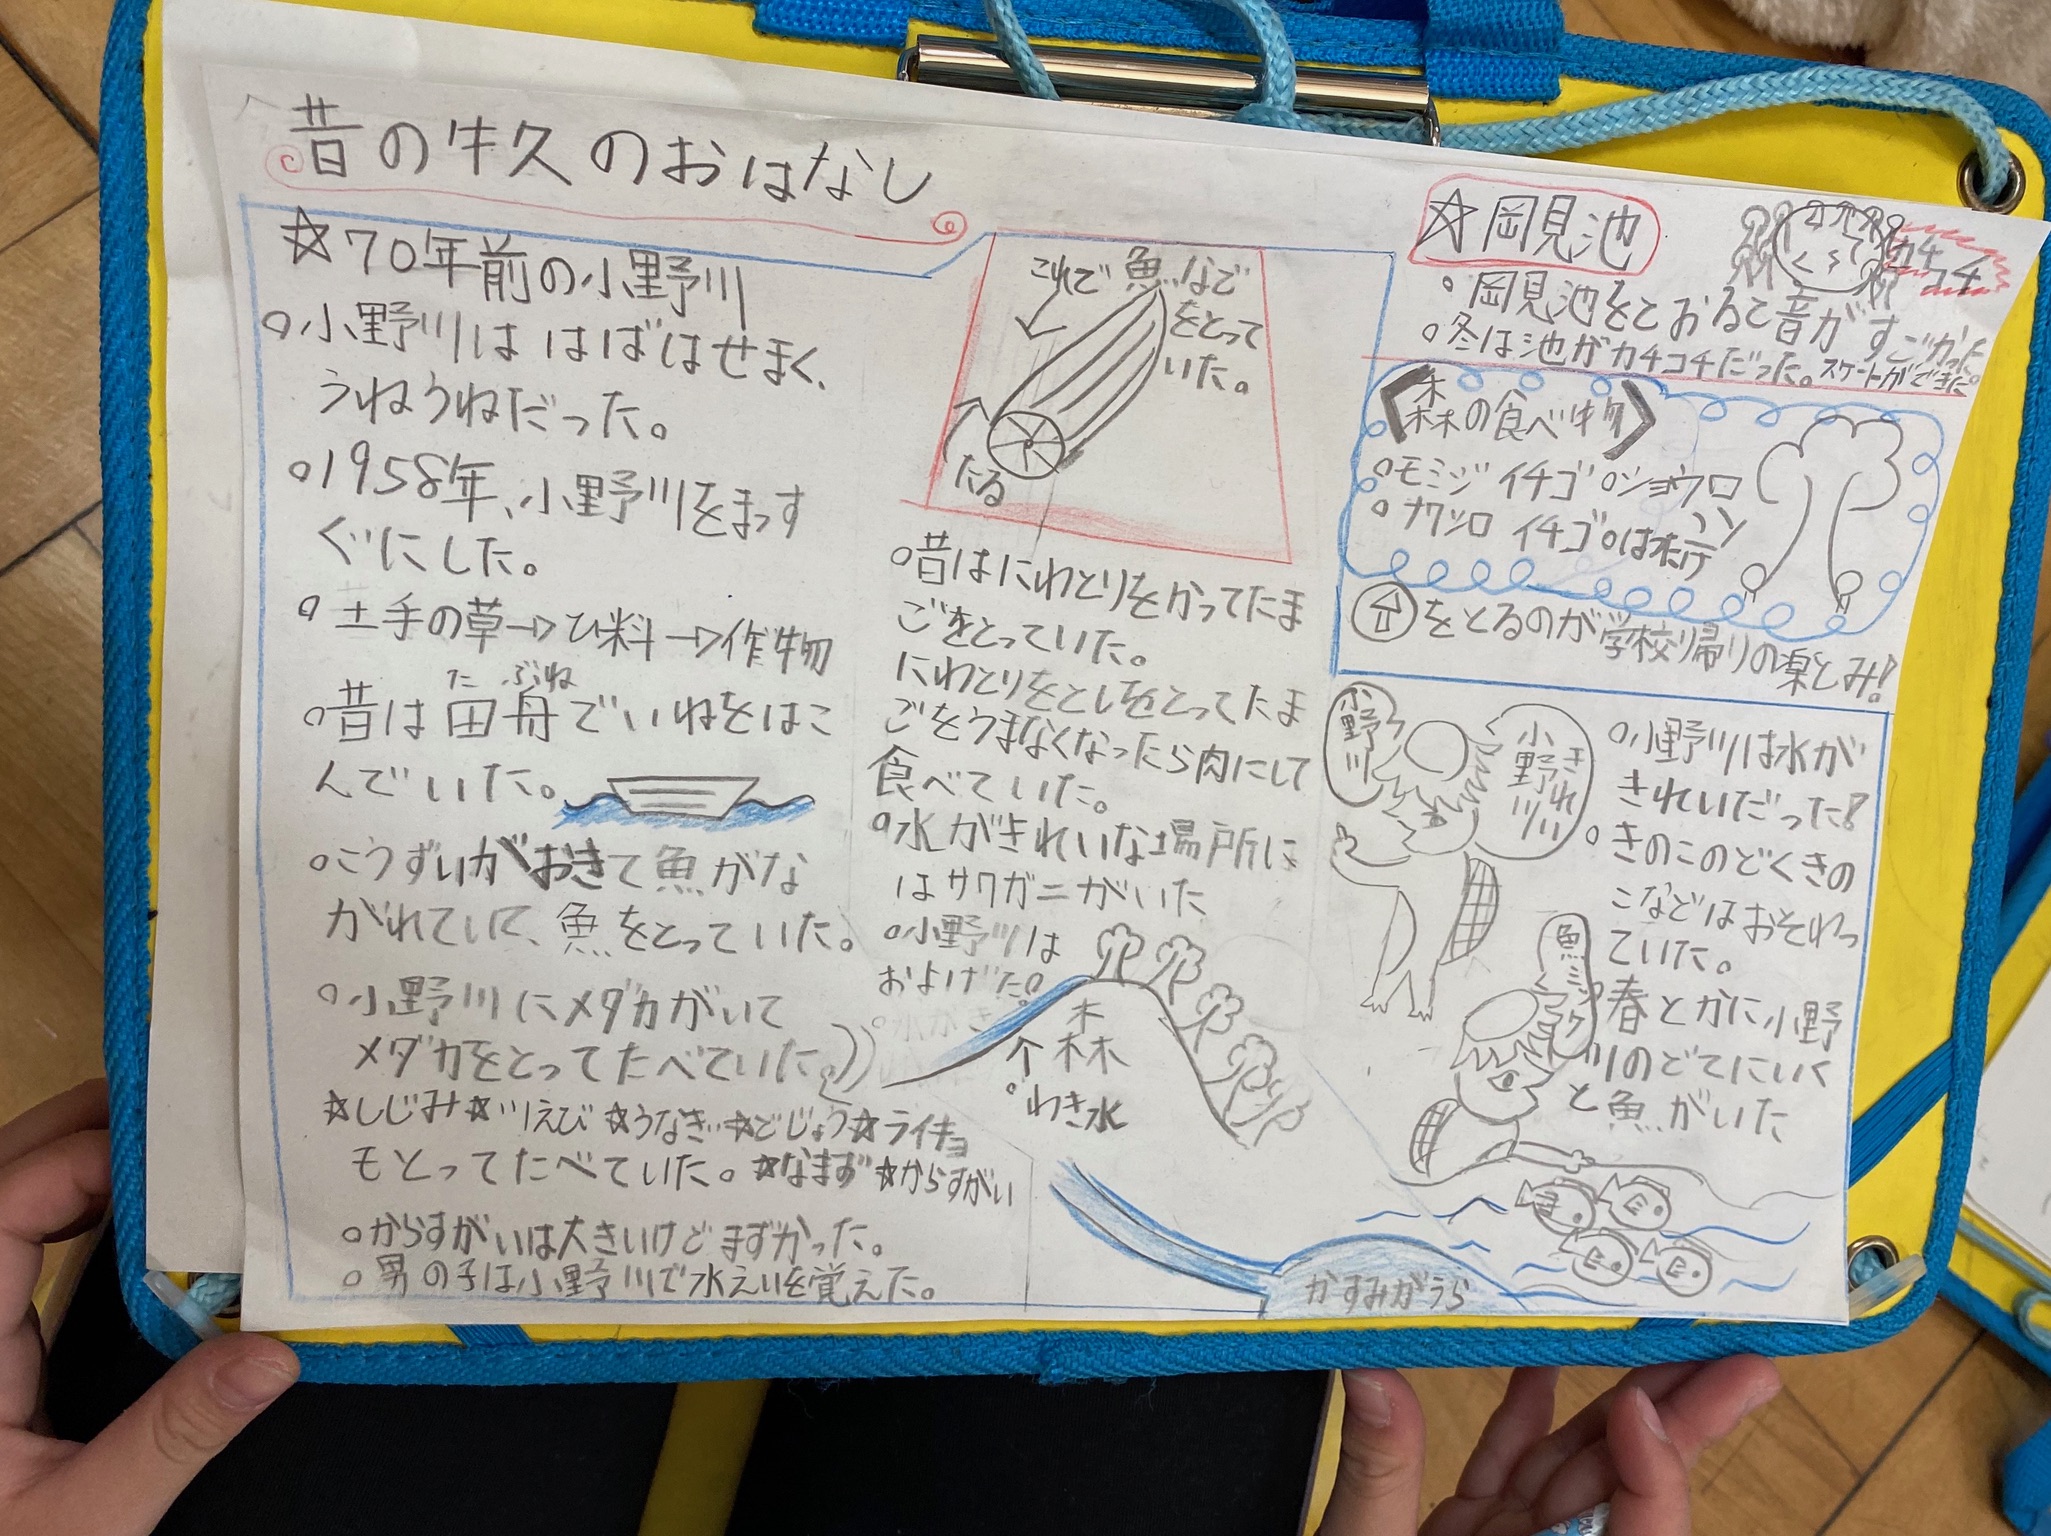 昔の牛久のおはなし
☆70年前の小野川
○小野川は はばはせまく、
うねうねだった。
○1958年、小野川をまっす
ぐにした。
○土手の草→ひ料→作物
た ぶね
○昔は田舟でいねをはこ
んでいた。
○こうずいがおきて魚がな
がれていて、魚をとっていた。
○小野川にメダカがいて
メダカをとってたべていた。
☆しじみ☆川えび☆うなぎ☆どじょう☆ライギョ
もとってたべていた。☆なまず☆からすがい
○からすがいは大きいけどまずかった。
○男の子は小野川で水えいを覚えた。
これで魚など
をとって
いた。
たる
○昔はにわとりをかってたま
ごをとっていた。
にわとりをとしをとってたま
ごをうまなくなったら肉にして
食べていた。
○水がきれいな場所に
はサワガニがいた
○小野川は
およげた。
森
↑
○わき水
かすみがうら
☆岡見池
カチ
コチ
○岡見池をとおると音がすごかった。
○冬は池がカチコチだった。スケートができた。
〈森の食べ物〉
○モミジイチゴ○ショウロ
○ナワシロイチゴ
↑をとるのが学校帰りの楽しみ!
小野川
きれい
小野川
○小野川は水が
きれいだった!
○きのこのどくきの
こなどはおそわっ
ていた。
春とかに小野
川のどてにいく
と魚がいた
魚ミッケ